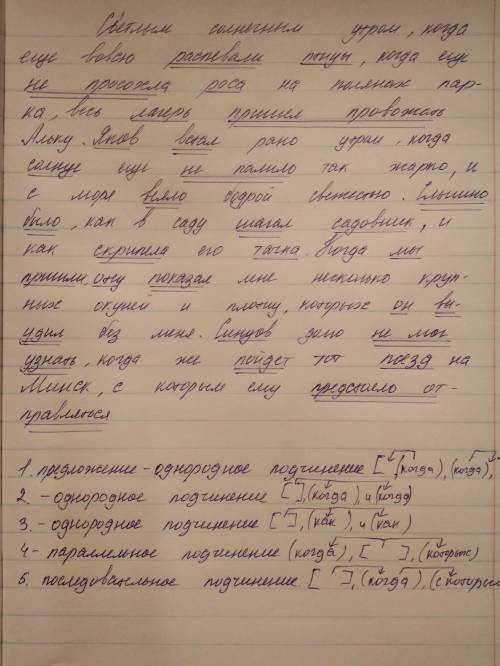 Светлым солнечным утром, когда
еще вовсю распевали птицы, когда ещё
не просохла роса на полянах пар-
ка, весь лагерь пришел провожать
Альку. Яков встал рано утром, когда
солнце еще не палило так жарко, и
с моря веяло бодрой свежестью. Слышно
было, как в саду шагал садовник, и
как скрипела его тачка. Когда мы
пришли, отец показал мне несколько круп-
ных окуней и плотиц, которых он вы-
удил без меня. Синцов долго не мог
узнать, когда же пойдет тот поезд на
Минск, с которым ему предстояло от-
правляться
1. предложение - однородное подчинение [ , (когда), (когда),
2. - однородное подчинение [ ], (когда), и (когда)
3. - однородное подчинение [ ], (как), и (как)
4 - параллельное подчинение (когда), [ ], (которых)
5. последовательное подчинение [ ], (когда), (с которым